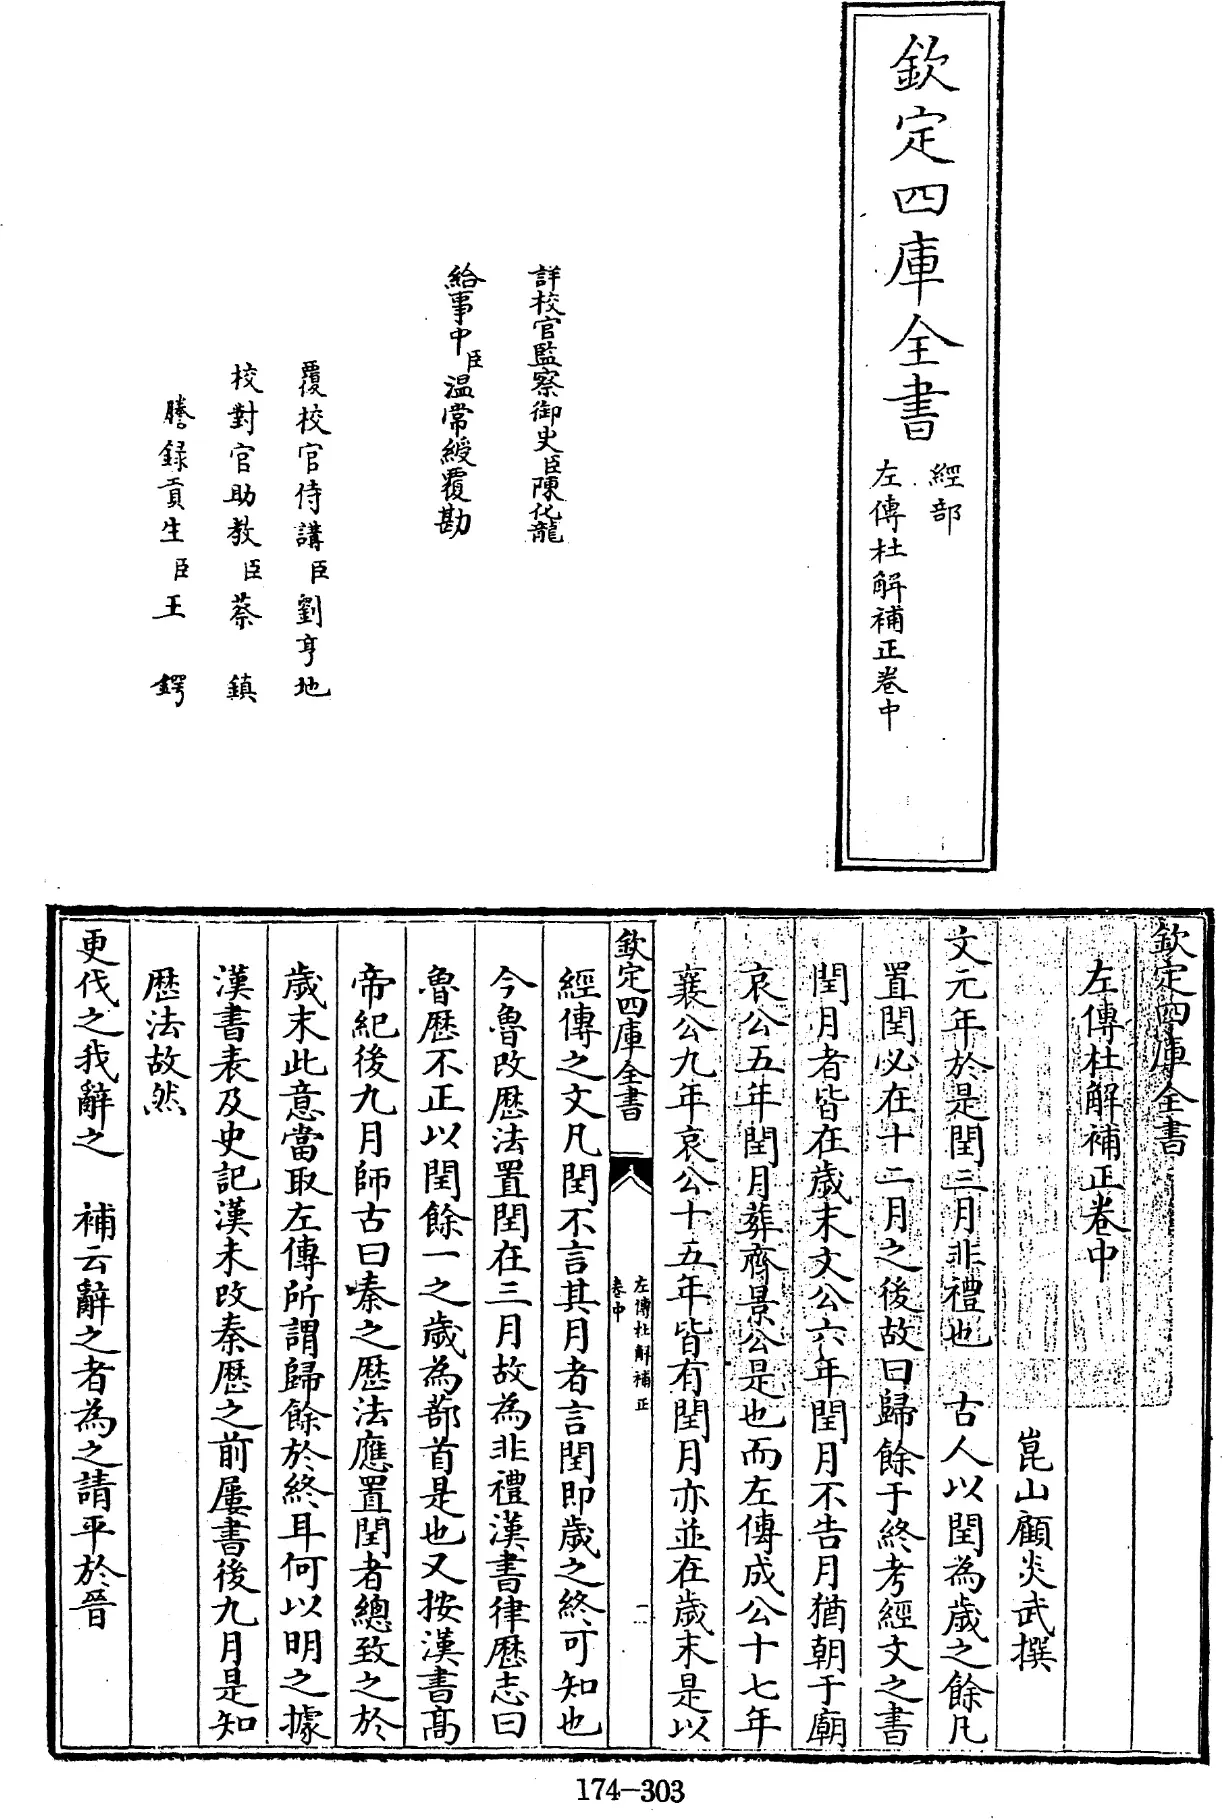 欽定四庫全書
經部
左傳杜解補正卷中
詳校官監察御史臣陳化龍
給事中臣温常綬覆勘
覆校官侍講臣劉亨地
校對官助教臣蔡鎮
謄録貢生臣王鍔
欽定四庫全書
左傳杜解補正卷中
崑山顧炎武撰
文元年於是閏三月非禮也 古人以閏為歲之餘凡
置閏必在十二月之後故曰歸餘于終考經文之書
閏月者皆在歲末文公六年閏月不告月猶朝于廟
哀公五年閏月葬齊景公是也而左傳成公十七年
襄公九年哀公十五年皆有閏月亦並在歲末是以
欽定四庫全書
左傳杜解補正
卷中
一
經傳之文凡閏不言其月者言閏即歲之終可知也
今魯改歷法置閏在三月故為非禮漢書律歷志曰
魯歷不正以閏餘一之歲為蔀首是也又按漢書高
帝紀後九月師古曰秦之歷法應置閏者總致之於
歲末此意當取左傳所謂歸餘於終耳何以明之據
漢書表及史記漢未改秦歷之前屢書後九月是知
歷法故然
更伐之我辭之 補云辭之者為之請平於晉
174-303